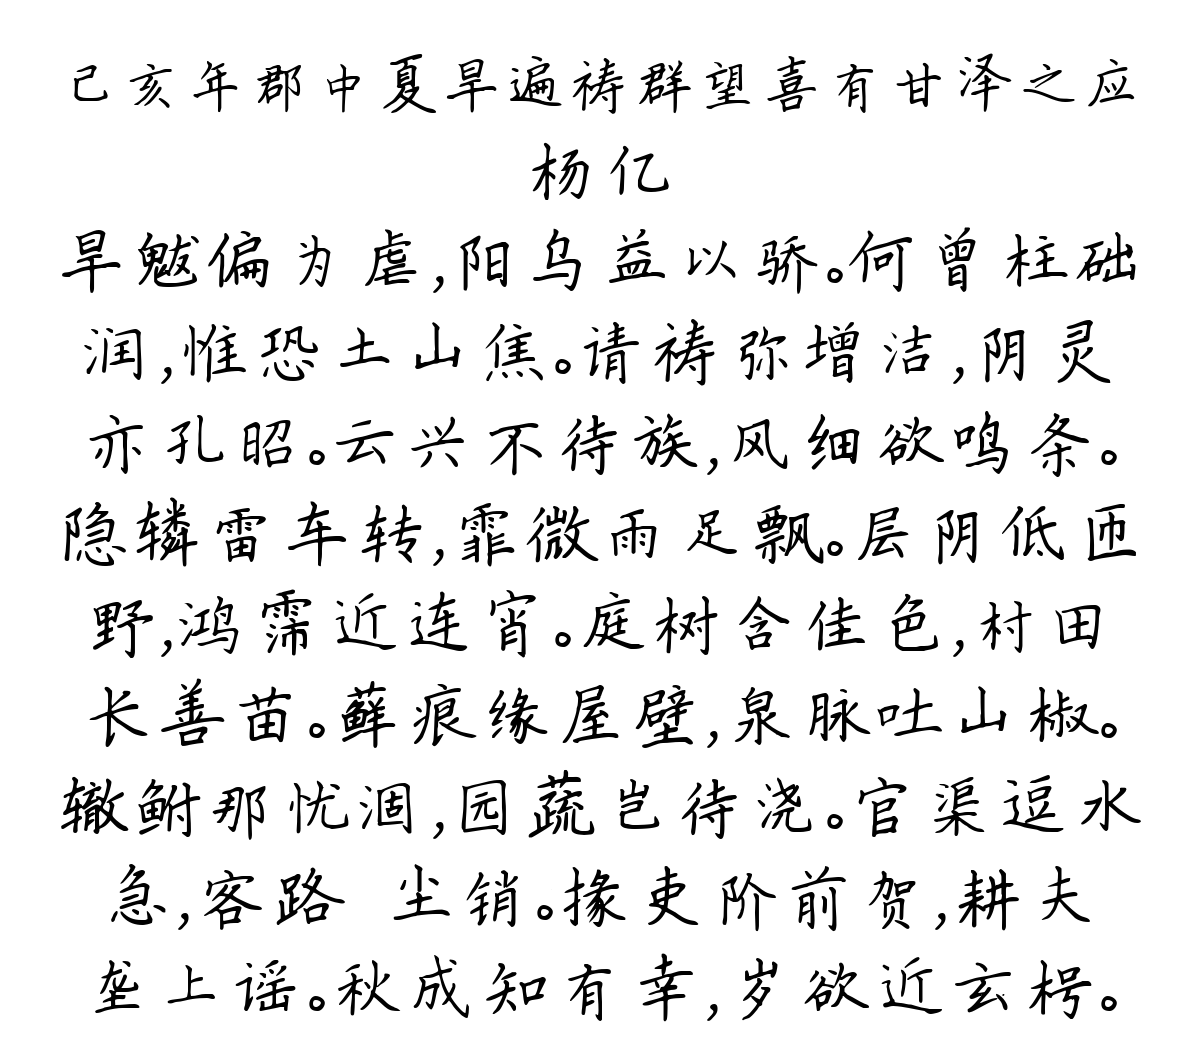 己亥年郡中夏旱遍祷群望喜有甘泽之应
杨亿
旱魃偏为虐,阳乌益以骄。何曾柱础
润,惟恐土山焦。请祷弥增洁,阴灵
亦孔昭。云兴不待族,风细欲鸣条。
隐辚雷车转,霏微雨足飘。层阴低匝
野,鸿霈近连宵。庭树含佳色,村田
长善苗。藓痕缘屋壁,泉脉吐山椒。
辙鲋那忧涸,园蔬岂待浇。官渠逗水
急,客路 尘销。掾吏阶前贺,耕夫
垄上谣。秋成知有幸,岁欲近玄枵。